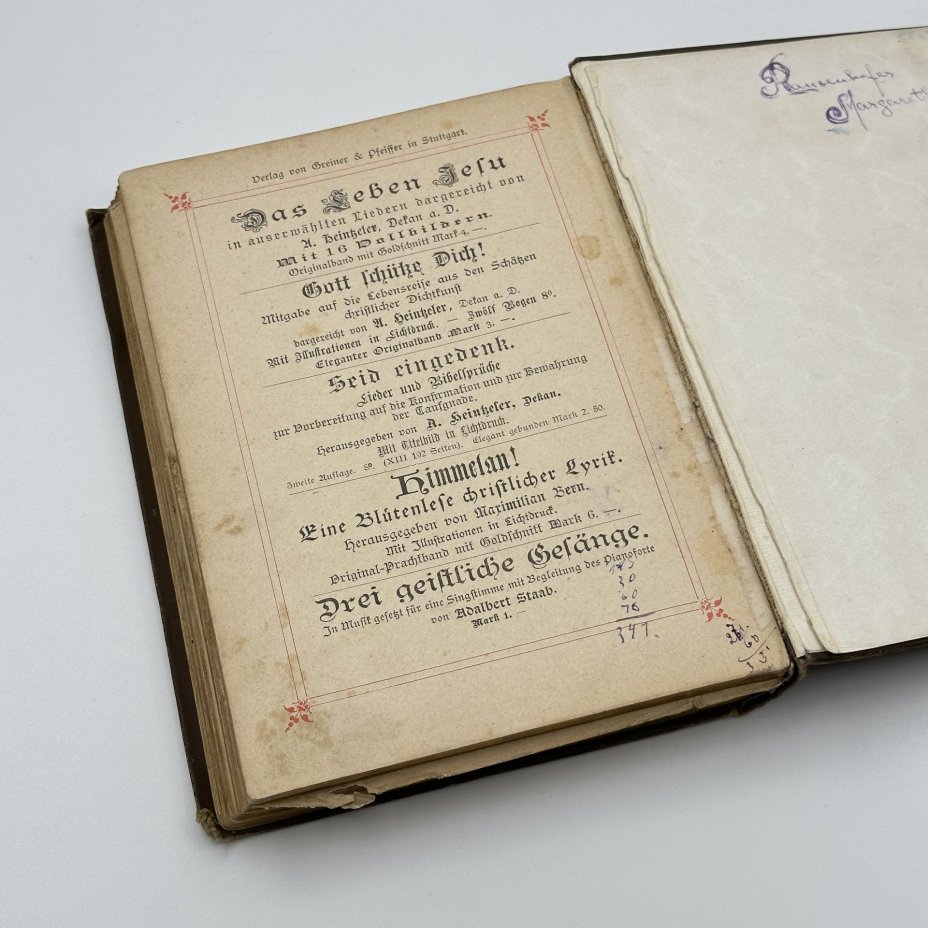 Verlag von Greiner & Pfeiffer in Stuttgart.
Das Leben Jesu
in auserwählten Liedern dargereicht von
A. Heintzeler, Dekan a. D.
Mit 16 Vollbildern.
Originalband mit Goldschnitt Mark 4. —.
Gott schütze Dich!
Mitgabe auf die Lebensreise aus den Schätzen
christlicher Dichtkunst
dargereicht von A. Heintzeler, Dekan a. D.
Mit Illustrationen in Lichtdruck. — Zwölf Bogen 8º.
Eleganter Originalband Mark 3. —.
Seid eingedenk.
Lieder und Bibelsprüche
zur Vorbereitung auf die Konfirmation und zur Bewahrung
der Taufgnade.
Herausgegeben von A. Heintzeler, Dekan.
Mit Titelbild in Lichtdruck.
Zweite Auflage. 8º. (XIII 192 Seiten). Elegant gebunden Mark 2. 50.
Himmelan!
Eine Blütenlese christlicher Lyrik.
Herausgegeben von Maximilian Bern.
Mit Illustrationen in Lichtdruck.
Original-Prachtband mit Goldschnitt Mark 6. —.
Drei geistliche Gesänge.
In Musik gesetzt für eine Singstimme mit Begleitung des Pianoforte
von Adalbert Staab.
Mark 1.
30
60
76
341.
60